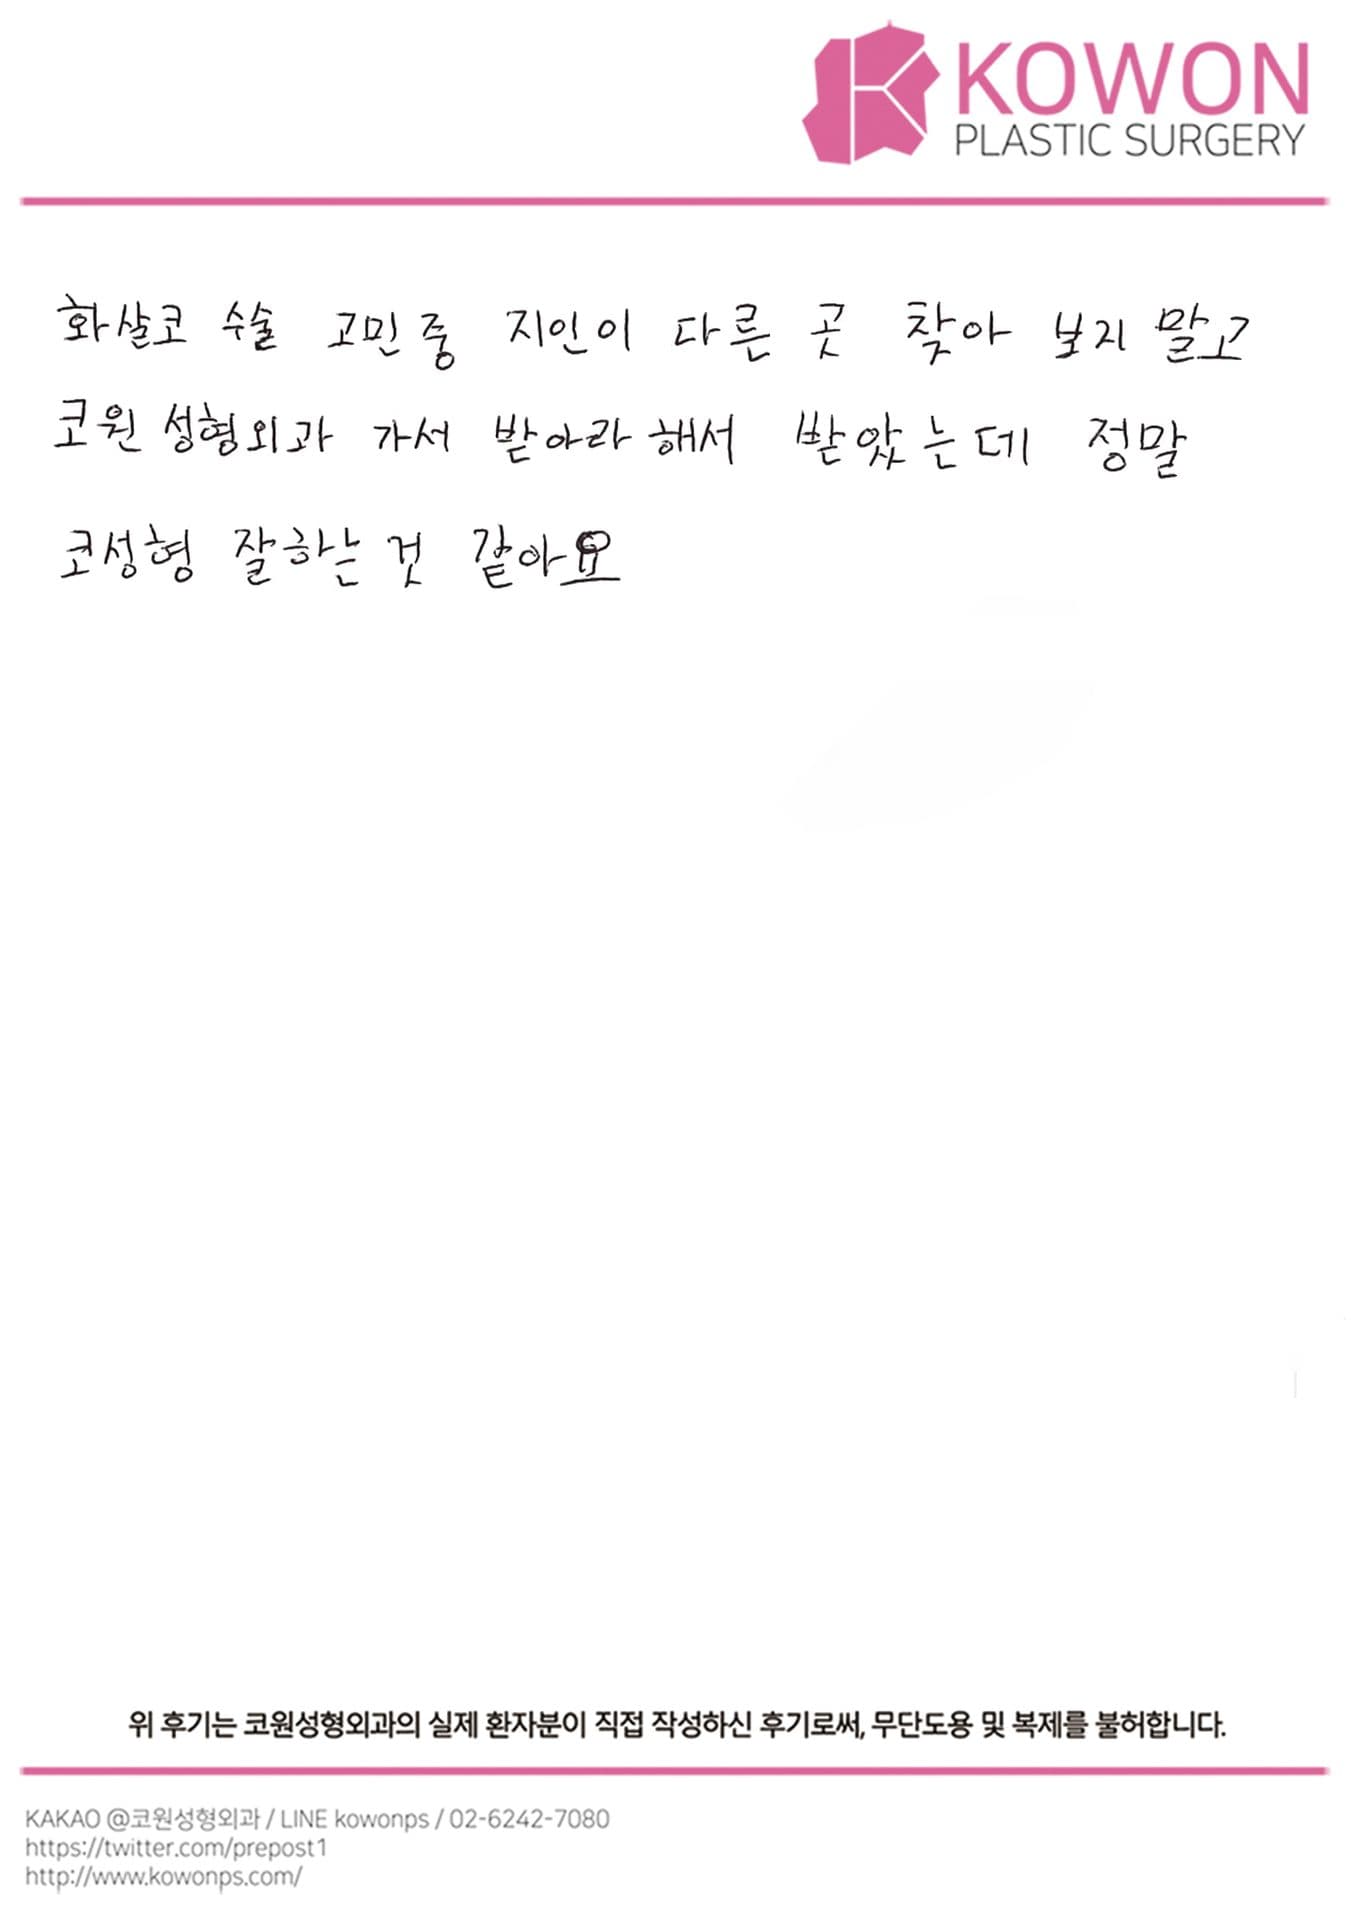 KOWON
PLASTIC SURGERY
화살코 수술 고민중 지인이 다른 곳 찾아 보지 말고
코원 성형외과 가서 받아라 해서 받았는데 정말
코성형 잘하는 것 같아요
위 후기는 코원성형외과의 실제 환자분이 직접 작성하신 후기로써, 무단도용 및 복제를 불허합니다.
KAKAO @코원성형외과 / LINE kowonps / 02-6242-7080
https://twitter.com/prepost1
http://www.kowonps.com/